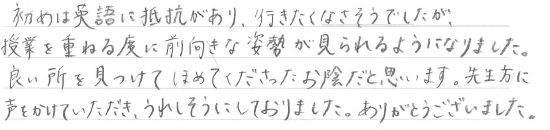 初めは英語に抵抗があり、行きたくなさそうでしたが、
授業を重ねる度に前向きな姿勢が見られるようになりました。
良い所を見つけてほめてくださったお陰だと思います。先生方に
声をかけていただき、うれしそうにしておりました。ありがとうございました。